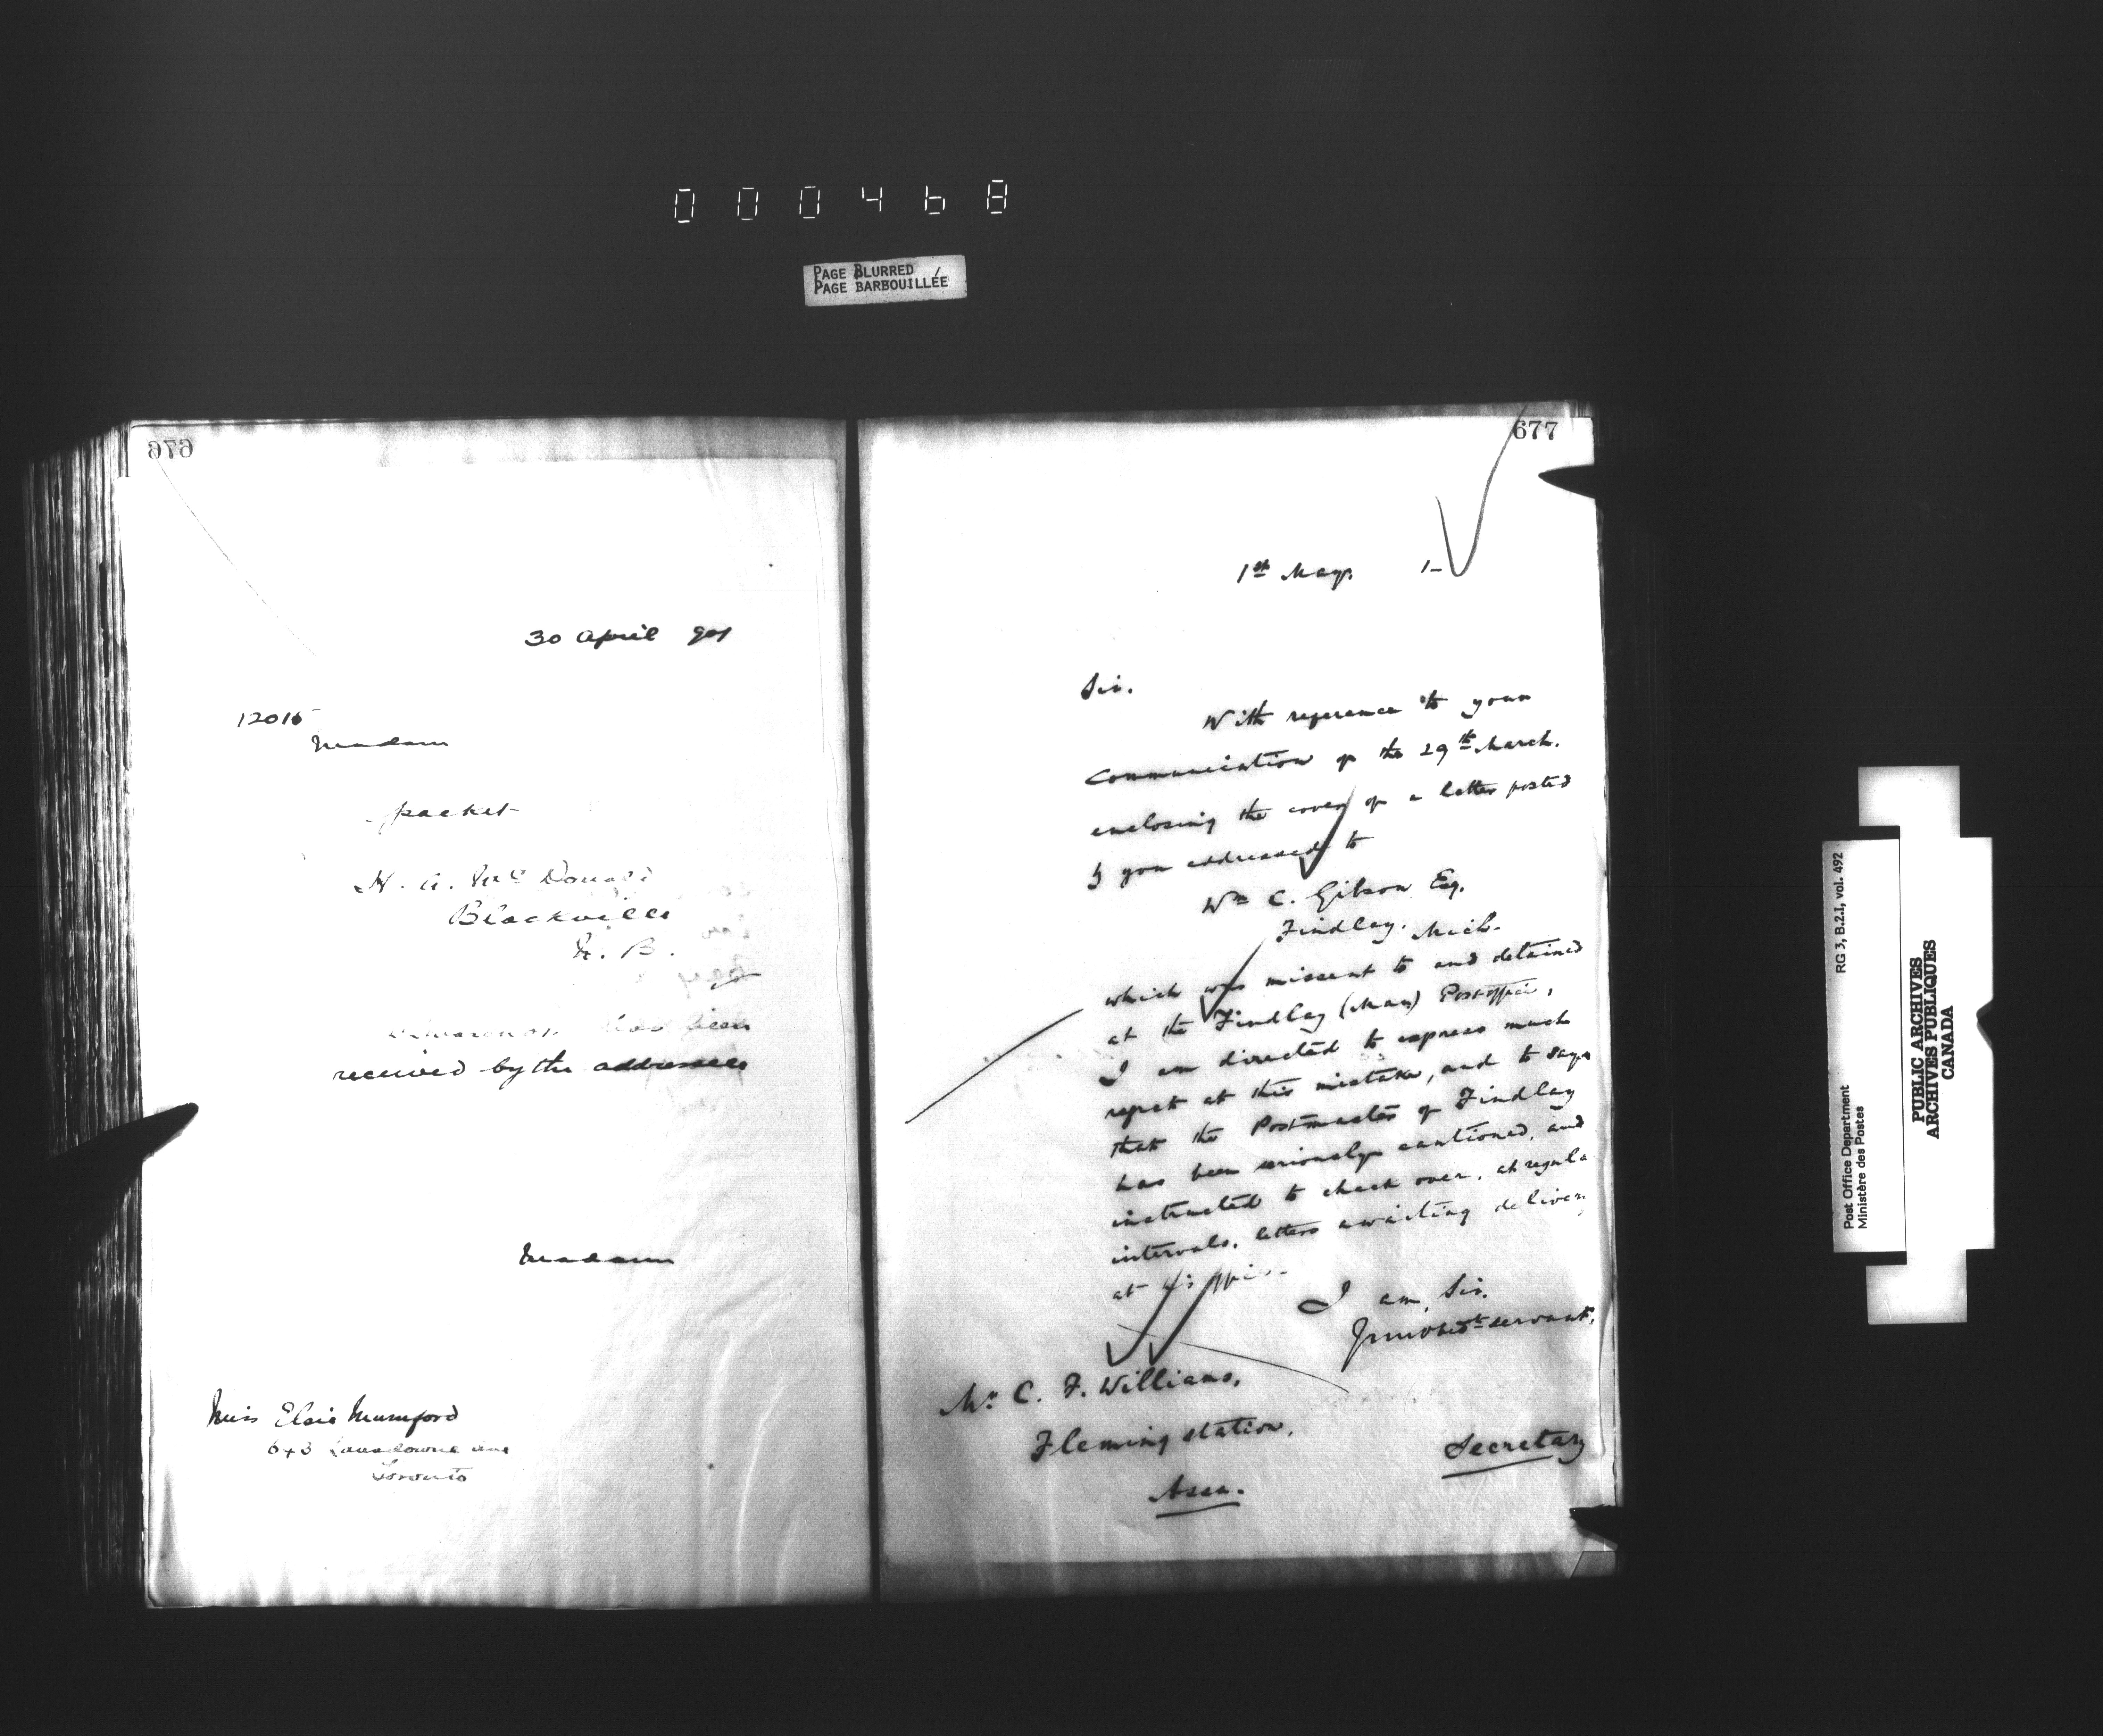 000468
PAGE BLURRED
PAGE BARBOUILLÉE
30 April 901
12015
Madam
packet
H. A. McDonald
Blackville
N. B.
has been
received by the addressee
Madam
Miss Elsie Mumford
643 Lansdowne ave
Toronto
677
1st May. 1-
Sir.
With reference to your
communication of the 29th March.
enclosing the cover of a letter posted
by you addressed to
Wm C. Gibson Esq.
Findlay. Mich.
which was missent to and detained
at the Findlay (Man) Post office,
I am directed to express much
regret at this mistake, and to say
that the Postmaster of Findlay
has been seriously cautioned, and
instructed to check over, at regula
intervals, letters awaiting delivery
at his office.
I am, Sir.
Yr mo obedt servant.
Mr. C. F. Williams,
Fleming station,
Assa.
Secretary
RG 3, B.2.I, vol. 492
Post Office Department
Ministère des Postes
PUBLIC ARCHIVES
ARCHIVES PUBLIQUES
CANADA